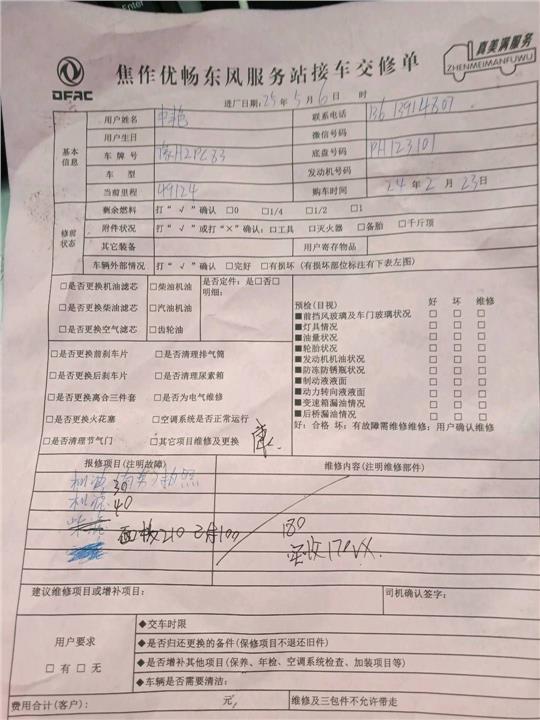 Enter
DFAC
焦作优畅东风服务站接车交修单
真美满服务
ZHENMEIMANFUWU
进厂日期: 25 年 5 月 6 日 时
基本信息
用户姓名
联系电话 13613914807
用户生日
微信号码
车 牌 号 豫H2PC83
底盘号码 PH123101
车 型
发动机号码
当前里程 49124
购车时间 24 年 2 月 23 日
修前状态
剩余燃料 打“√”确认 □0 □1/4 □1/2 □1
附件状况 打“√”或打“×”确认:□工具 □灭火器 □备胎 □千斤顶
其它装备
用户寄存物品
车辆外部情况 打“√”确认 □完好 □有损坏 (有损坏部位标注有下表左图)
□是否更换机油滤芯 □柴油机油 是否定件:是□否□
明细:
□是否更换柴油滤芯 □汽油机油
□是否更换空气滤芯 □齿轮油
预检(目视) 好 坏 维修
■前挡风玻璃及车门玻璃状况 □ □ □
■灯具情况 □ □ □
■油量状况 □ □ □
■轮胎状况 □ □ □
■发动机机油状况 □ □ □
■防冻防锈瓶状况 □ □ □
■制动液液面 □ □ □
■动力转向液液面 □ □ □
■变速箱漏油情况 □ □ □
■后桥漏油情况 □ □ □
好:合格 坏:有故障需维修维修:用户确认维修
□是否更换前刹车片 □是否清理排气筒
□是否更换后刹车片 □是否清理尿素箱
□是否更换离合三件套 □是否为电气维修
□是否更换火花塞 □空调系统是否正常运行
□是否清理节气门 □其它项目维修及更换
报修项目(注明故障)
维修内容(注明维修部件)
机油 拍照
30
机滤
40
210 100
180
实收170
建议维修项目或增补项目:
司机确认签字:
用户要求
□ 有 □ 无
◆交车时限
◆是否归还更换的备件(保修项目不退还旧件)
◆是否增补其他项目(保养、年检、空调系统检查、加装项目等)
◆车辆是否需要清洁:
费用合计(客户): 元,
维修及三包件不允许带走